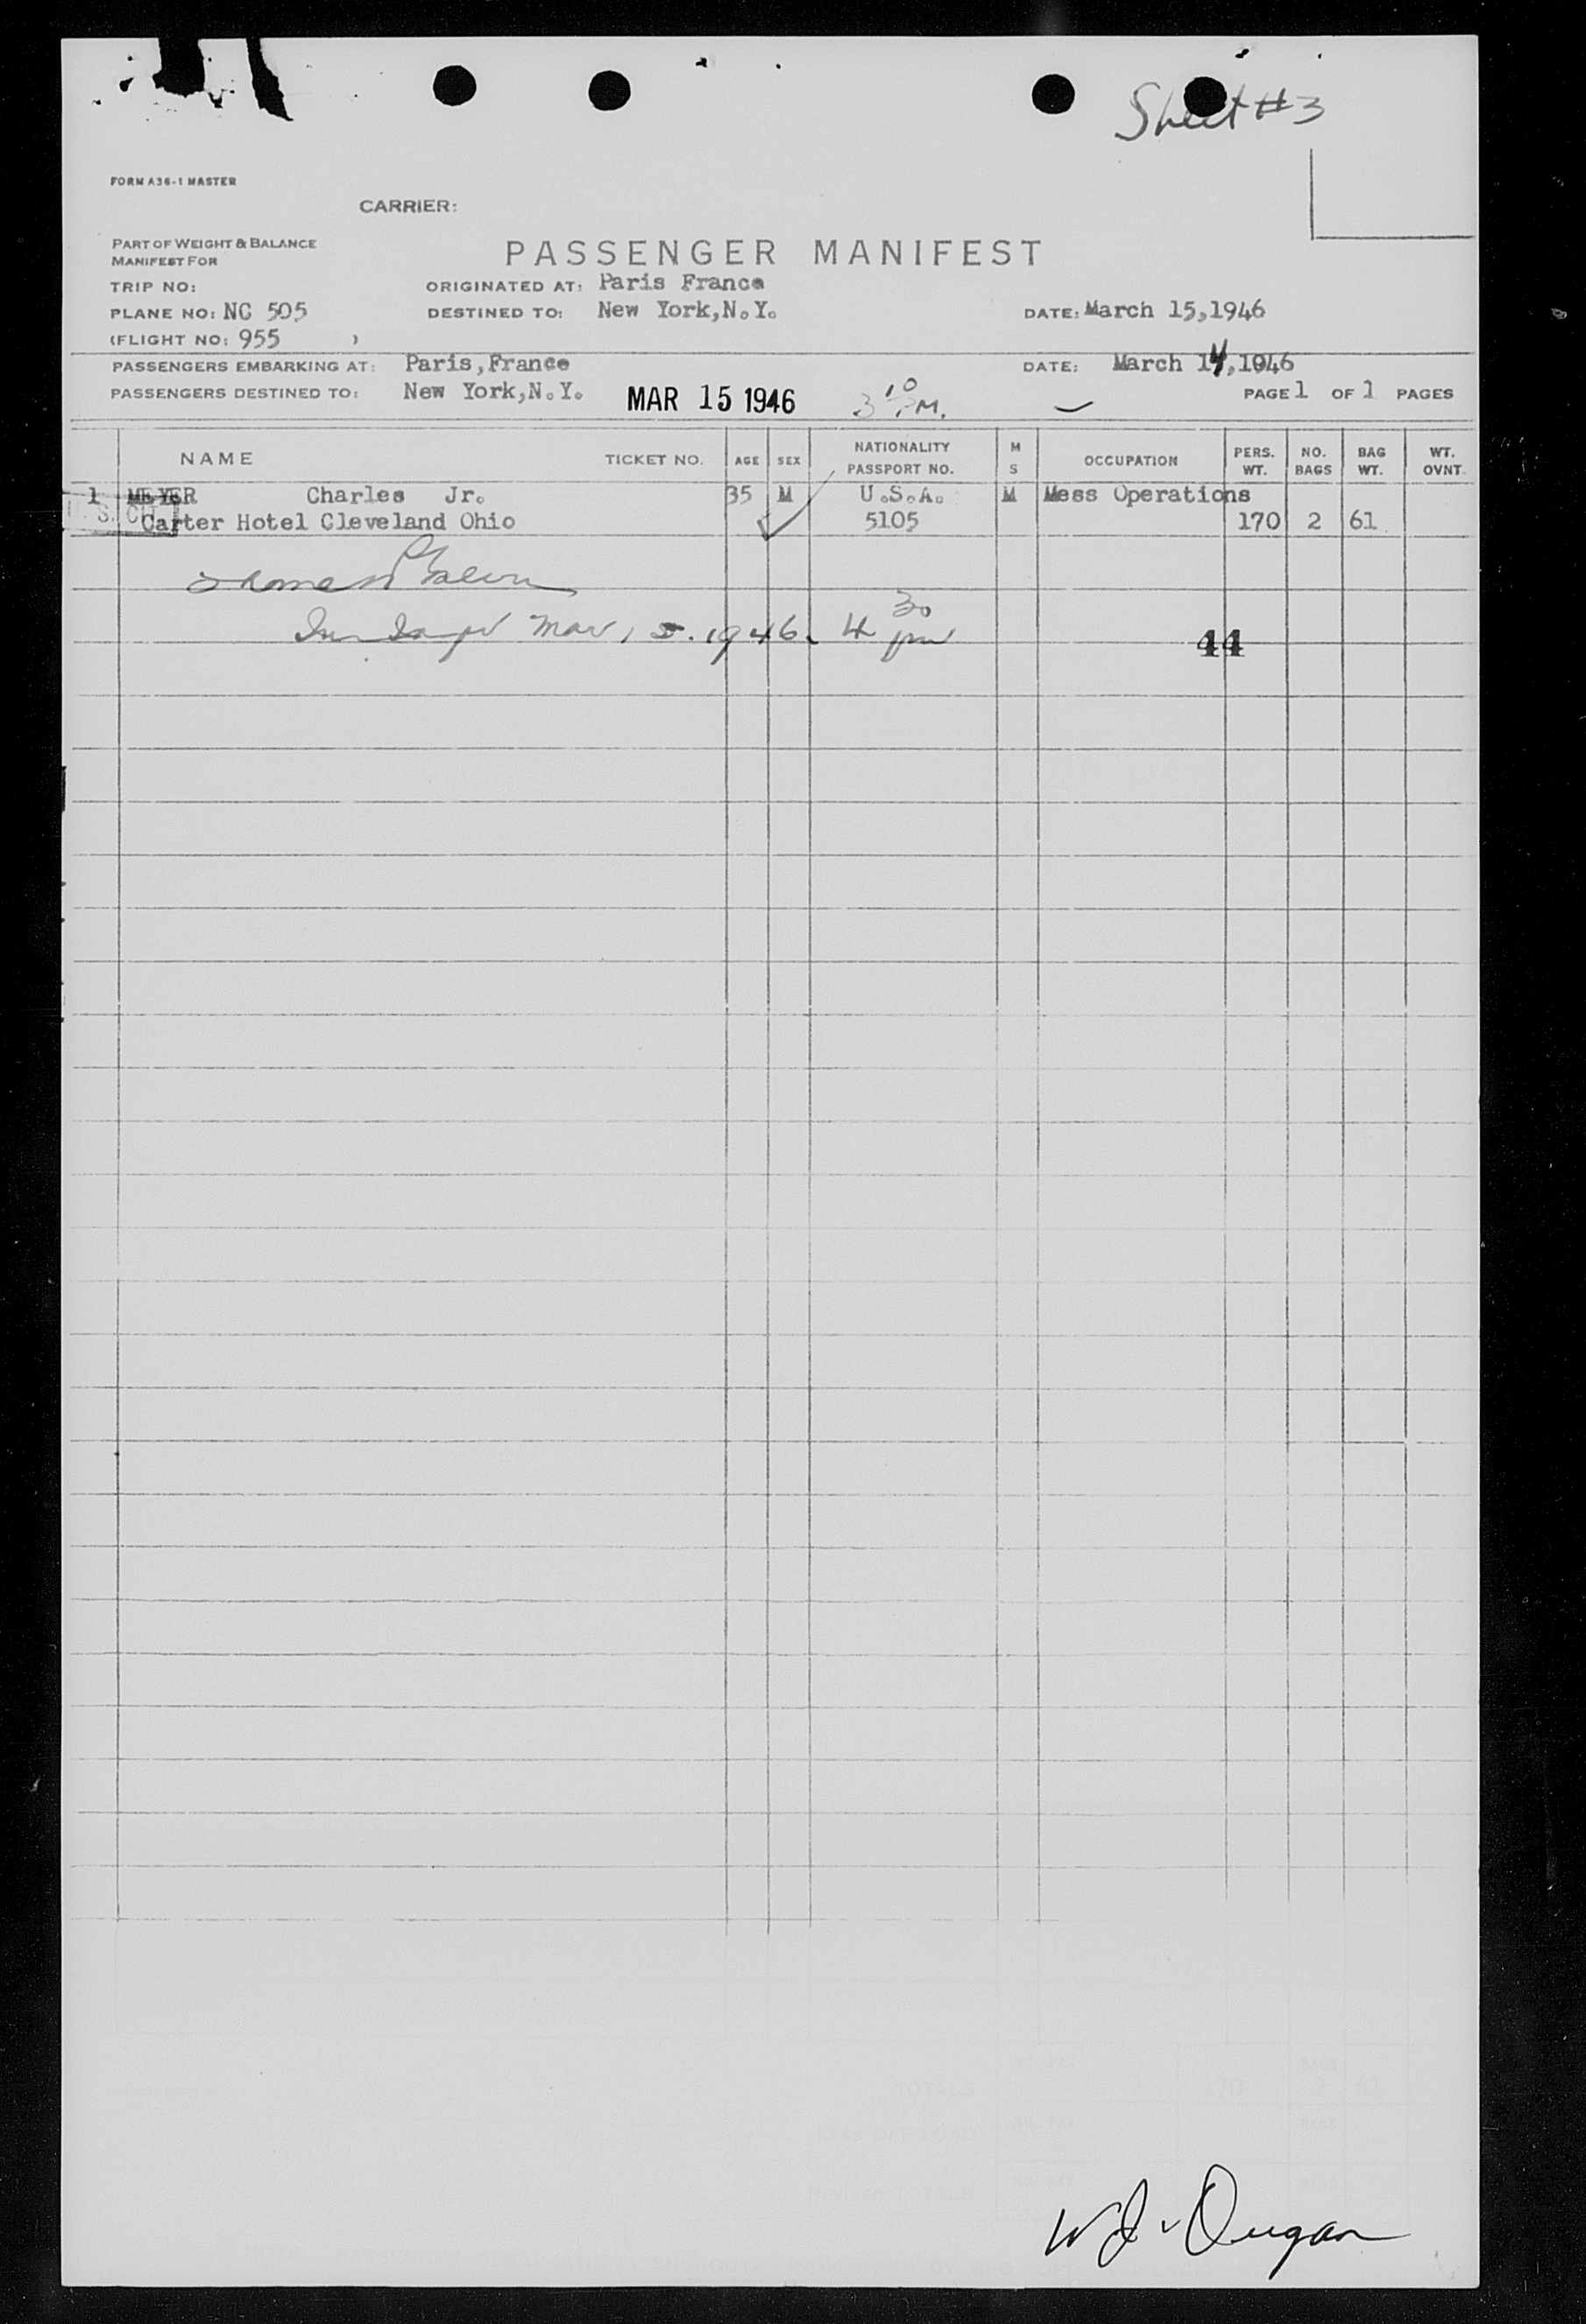 Sheet #3
FORM A36-1 MASTER
CARRIER:
PART OF WEIGHT & BALANCE
MANIFEST FOR
PASSENGER MANIFEST
TRIP NO:
ORIGINATED AT: Paris France
PLANE NO: NC 505
DESTINED TO: New York,N.Y.
DATE: March 15,1946
(FLIGHT NO: 955 )
PASSENGERS EMBARKING AT: Paris,France
DATE: March 14,1946
PASSENGERS DESTINED TO: New York,N.Y. MAR 15 1946 3 10 P.M.
PAGE 1 OF 1 PAGES
NAME TICKET NO. AGE SEX NATIONALITY PASSPORT NO. M S OCCUPATION PERS. WT. NO. BAGS BAG WT. WT. OVNT.
1 MEYER Charles Jr. 35 M U.S.A. M Mess Operations
Carter Hotel Cleveland Ohio 5105 170 2 61
Mar 15. 1946. 4 30 pm
44